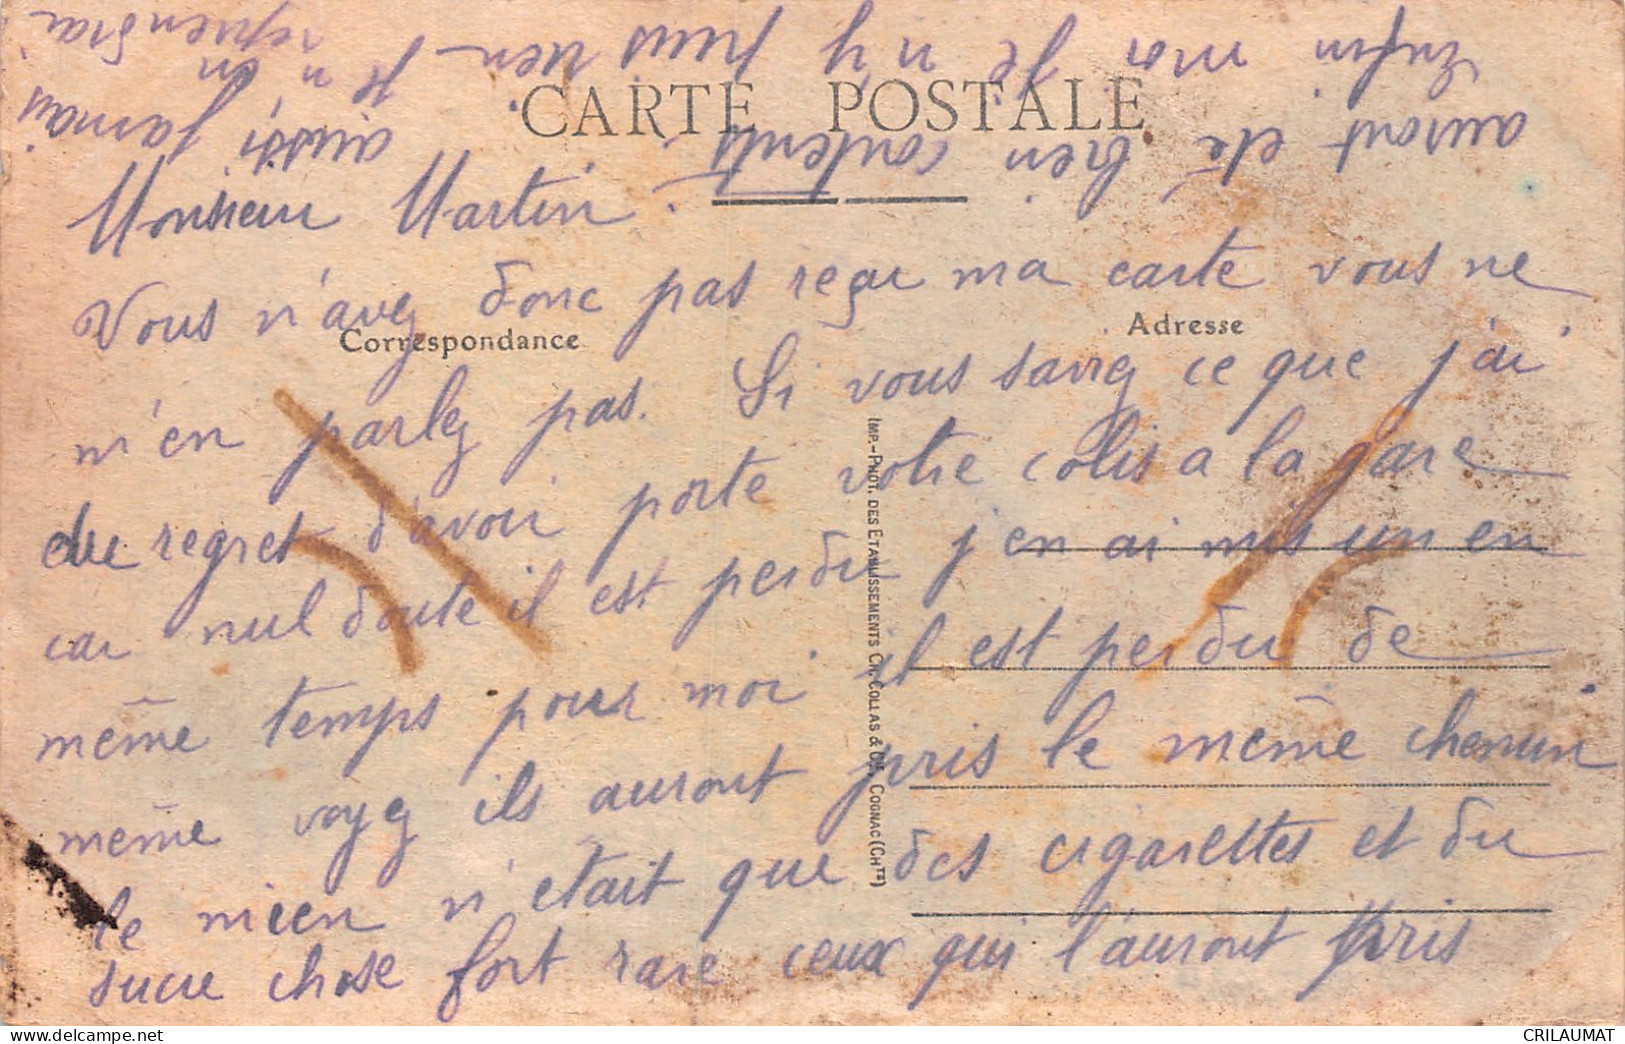 CARTE POSTALE
Monsieur Martin.
Vous n'avez donc pas reçu ma carte vous ne
Correspondance
Adresse
m'en parlez pas. Si vous savez ce que j'ai
du regret d'avoir porte votre colis a la gare
car nul doute il est perdu j'en ai mis un en
même temps pour moi il est perdu de
même voyez ils auront pris le même chemin
le mien n'etait que des cigarettes et du
sucre chose fort rare ceux qui l'auront pris
auront eté bien contents. aussi jamais
Enfin moi je n'y peus rien - je n'en reprendrai
IMP.-PHOT. DES ETABLISSEMENTS CH. COLLAS & Cie, COGNAC (CHTE)
delcampe.net
CRILAUMAT